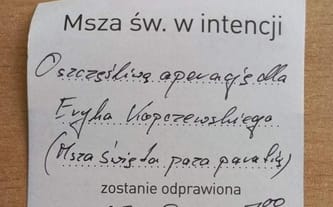 Msza św. w intencji
O szczęśliwą operację dla
Eryka Kopczewskiego
(Msza Święta poza parafią)
zostanie odprawiona